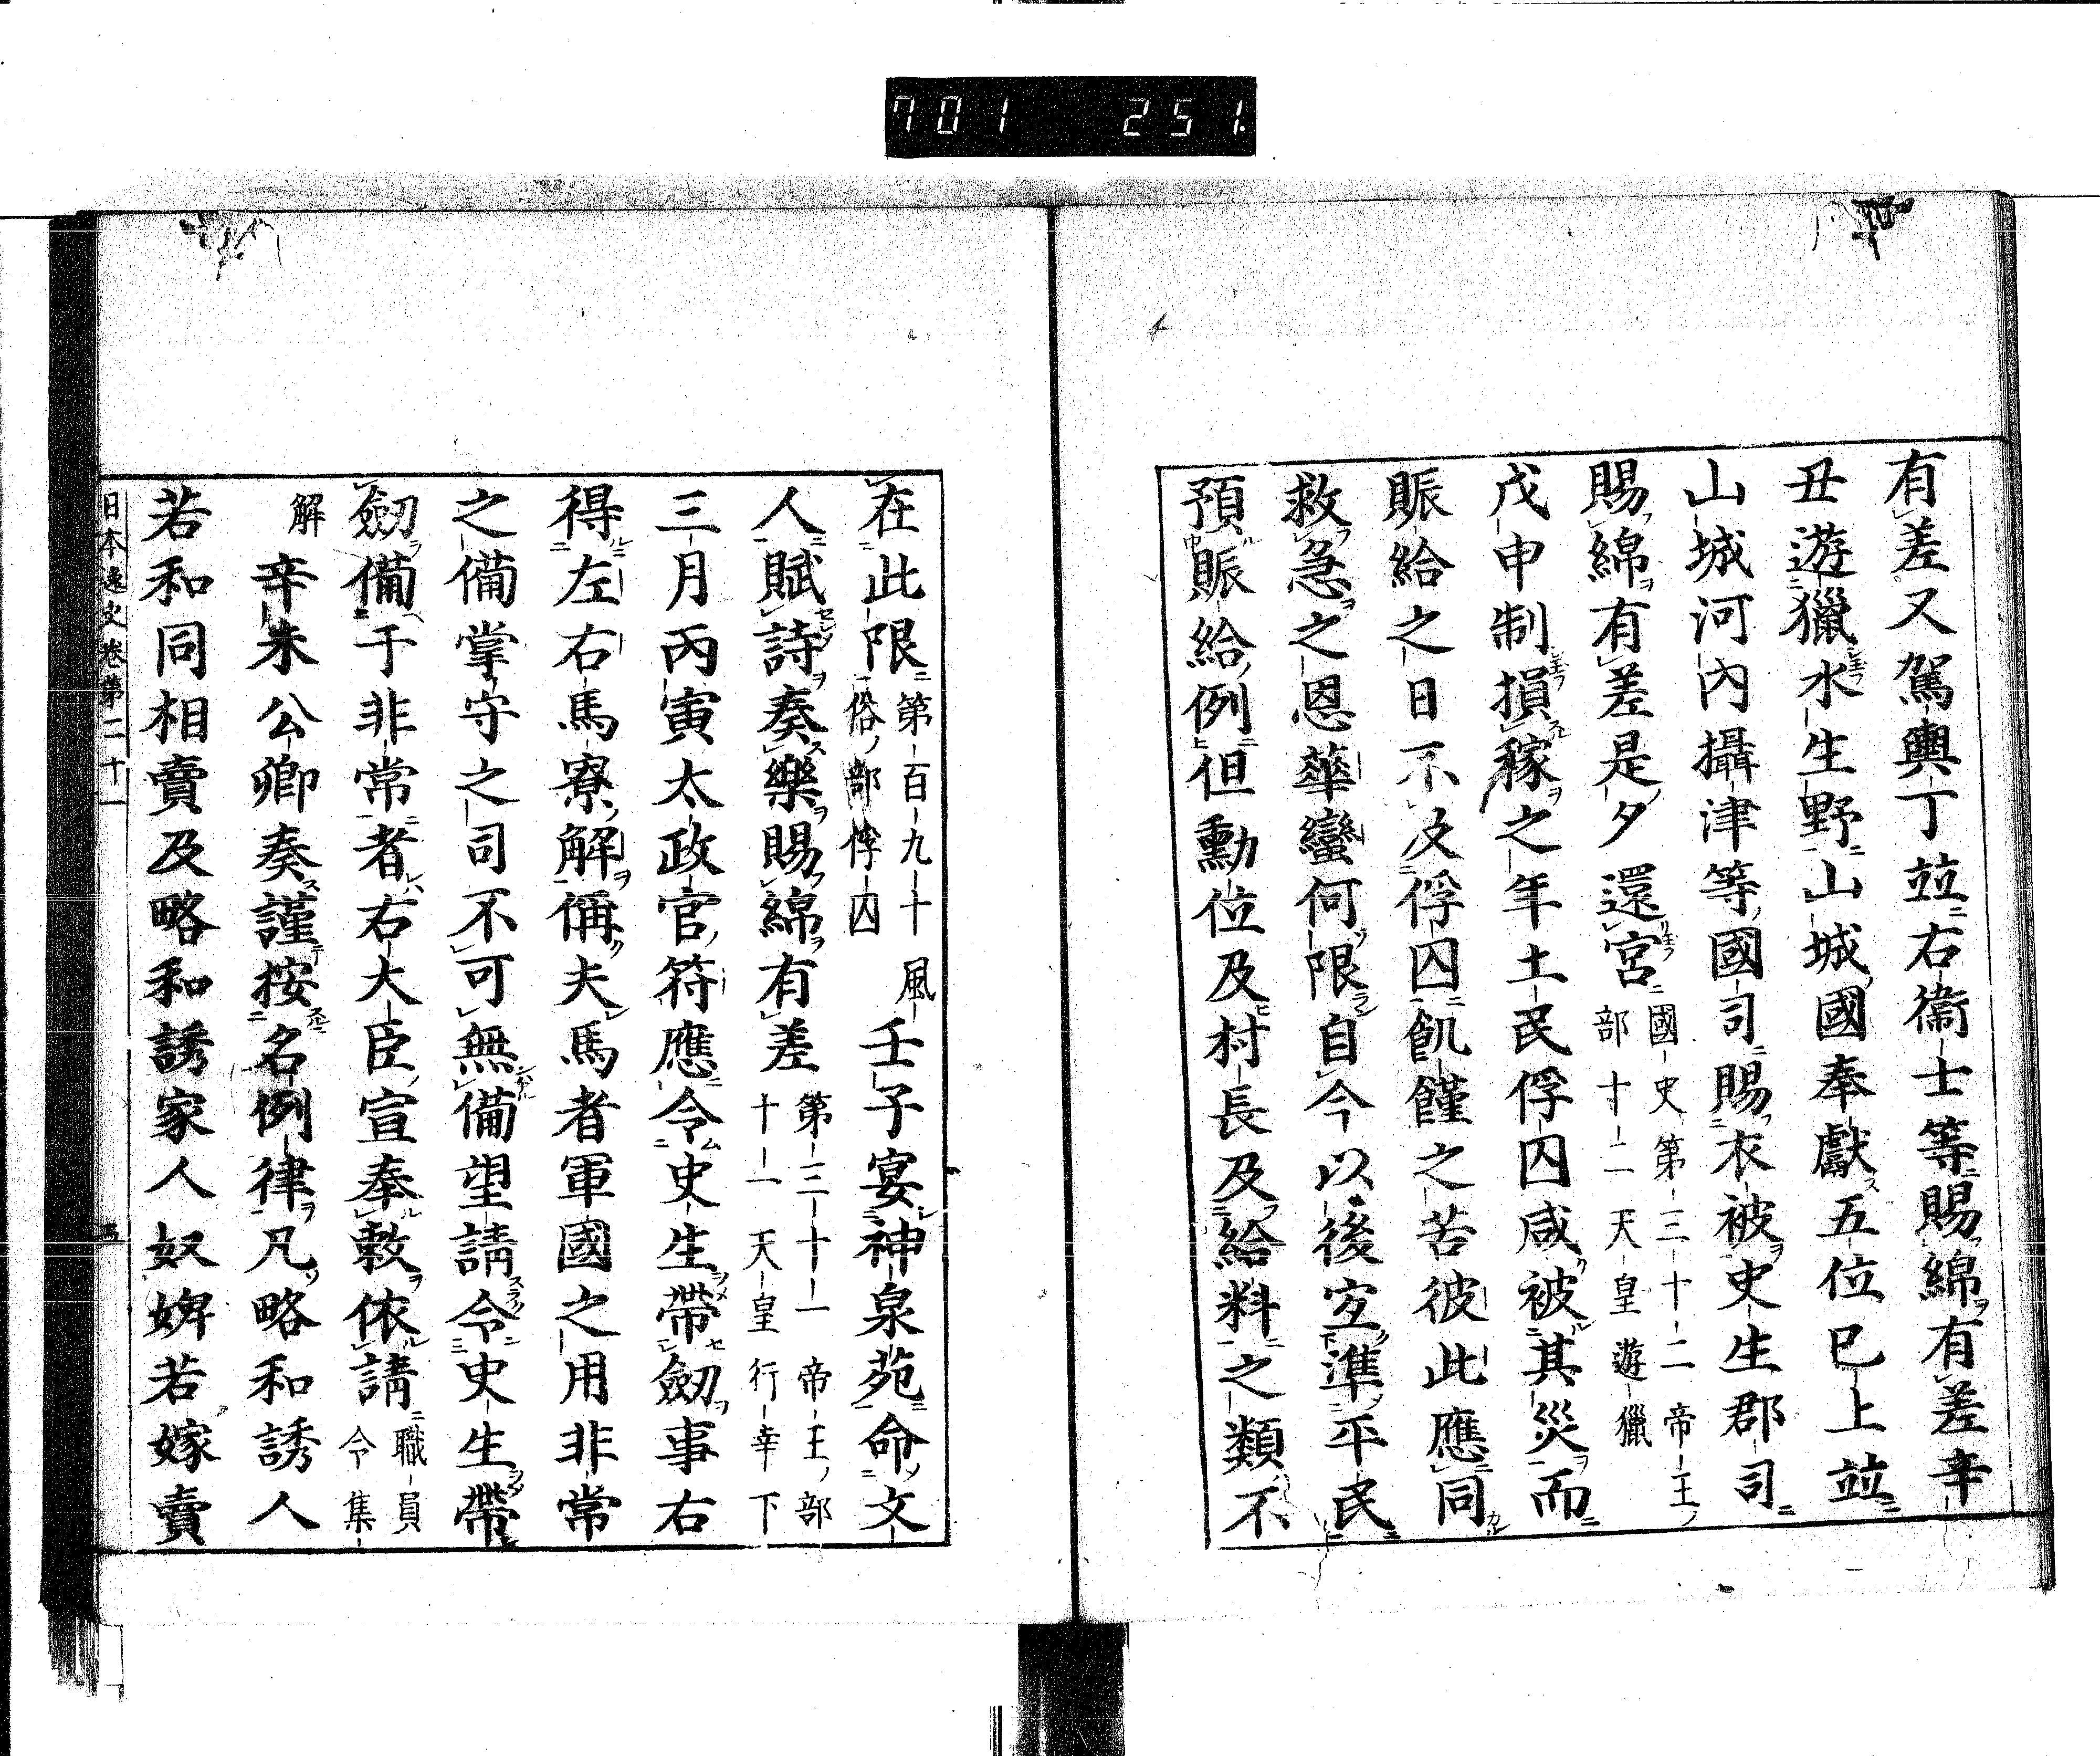 701 251.
有差又駕輿丁竝右衞士等賜綿有差辛
丑遊獵水生野山城國奉獻五位已上竝
山城河內攝津等國司賜衣被史生郡司
賜綿有差是夕還宮國史第三十二帝王部十二天皇遊獵
戊申制損稼之年土民俘囚咸被其災而
賑給之日不及俘囚飢饉之苦彼此應同
救急之恩華蠻何限自今以後宜準平民
預賑給例但勳位及村長及給料之類不
在此限第百九十風俗部俘囚壬子宴神泉苑命文
人賦詩奏樂賜綿有差第三十一帝王部十一天皇行幸下
三月丙寅太政官符應令史生帶劒事右
得左右馬寮解偁夫馬者軍國之用非常
之備掌守之司不可無備望請令史生帶
劒備于非常者右大臣宣奉敕依請職員令集
解辛未公卿奏謹按名例律凡略和誘人
若和同相賣及略和誘家人奴婢若嫁賣
日本逸史卷第二十一 五